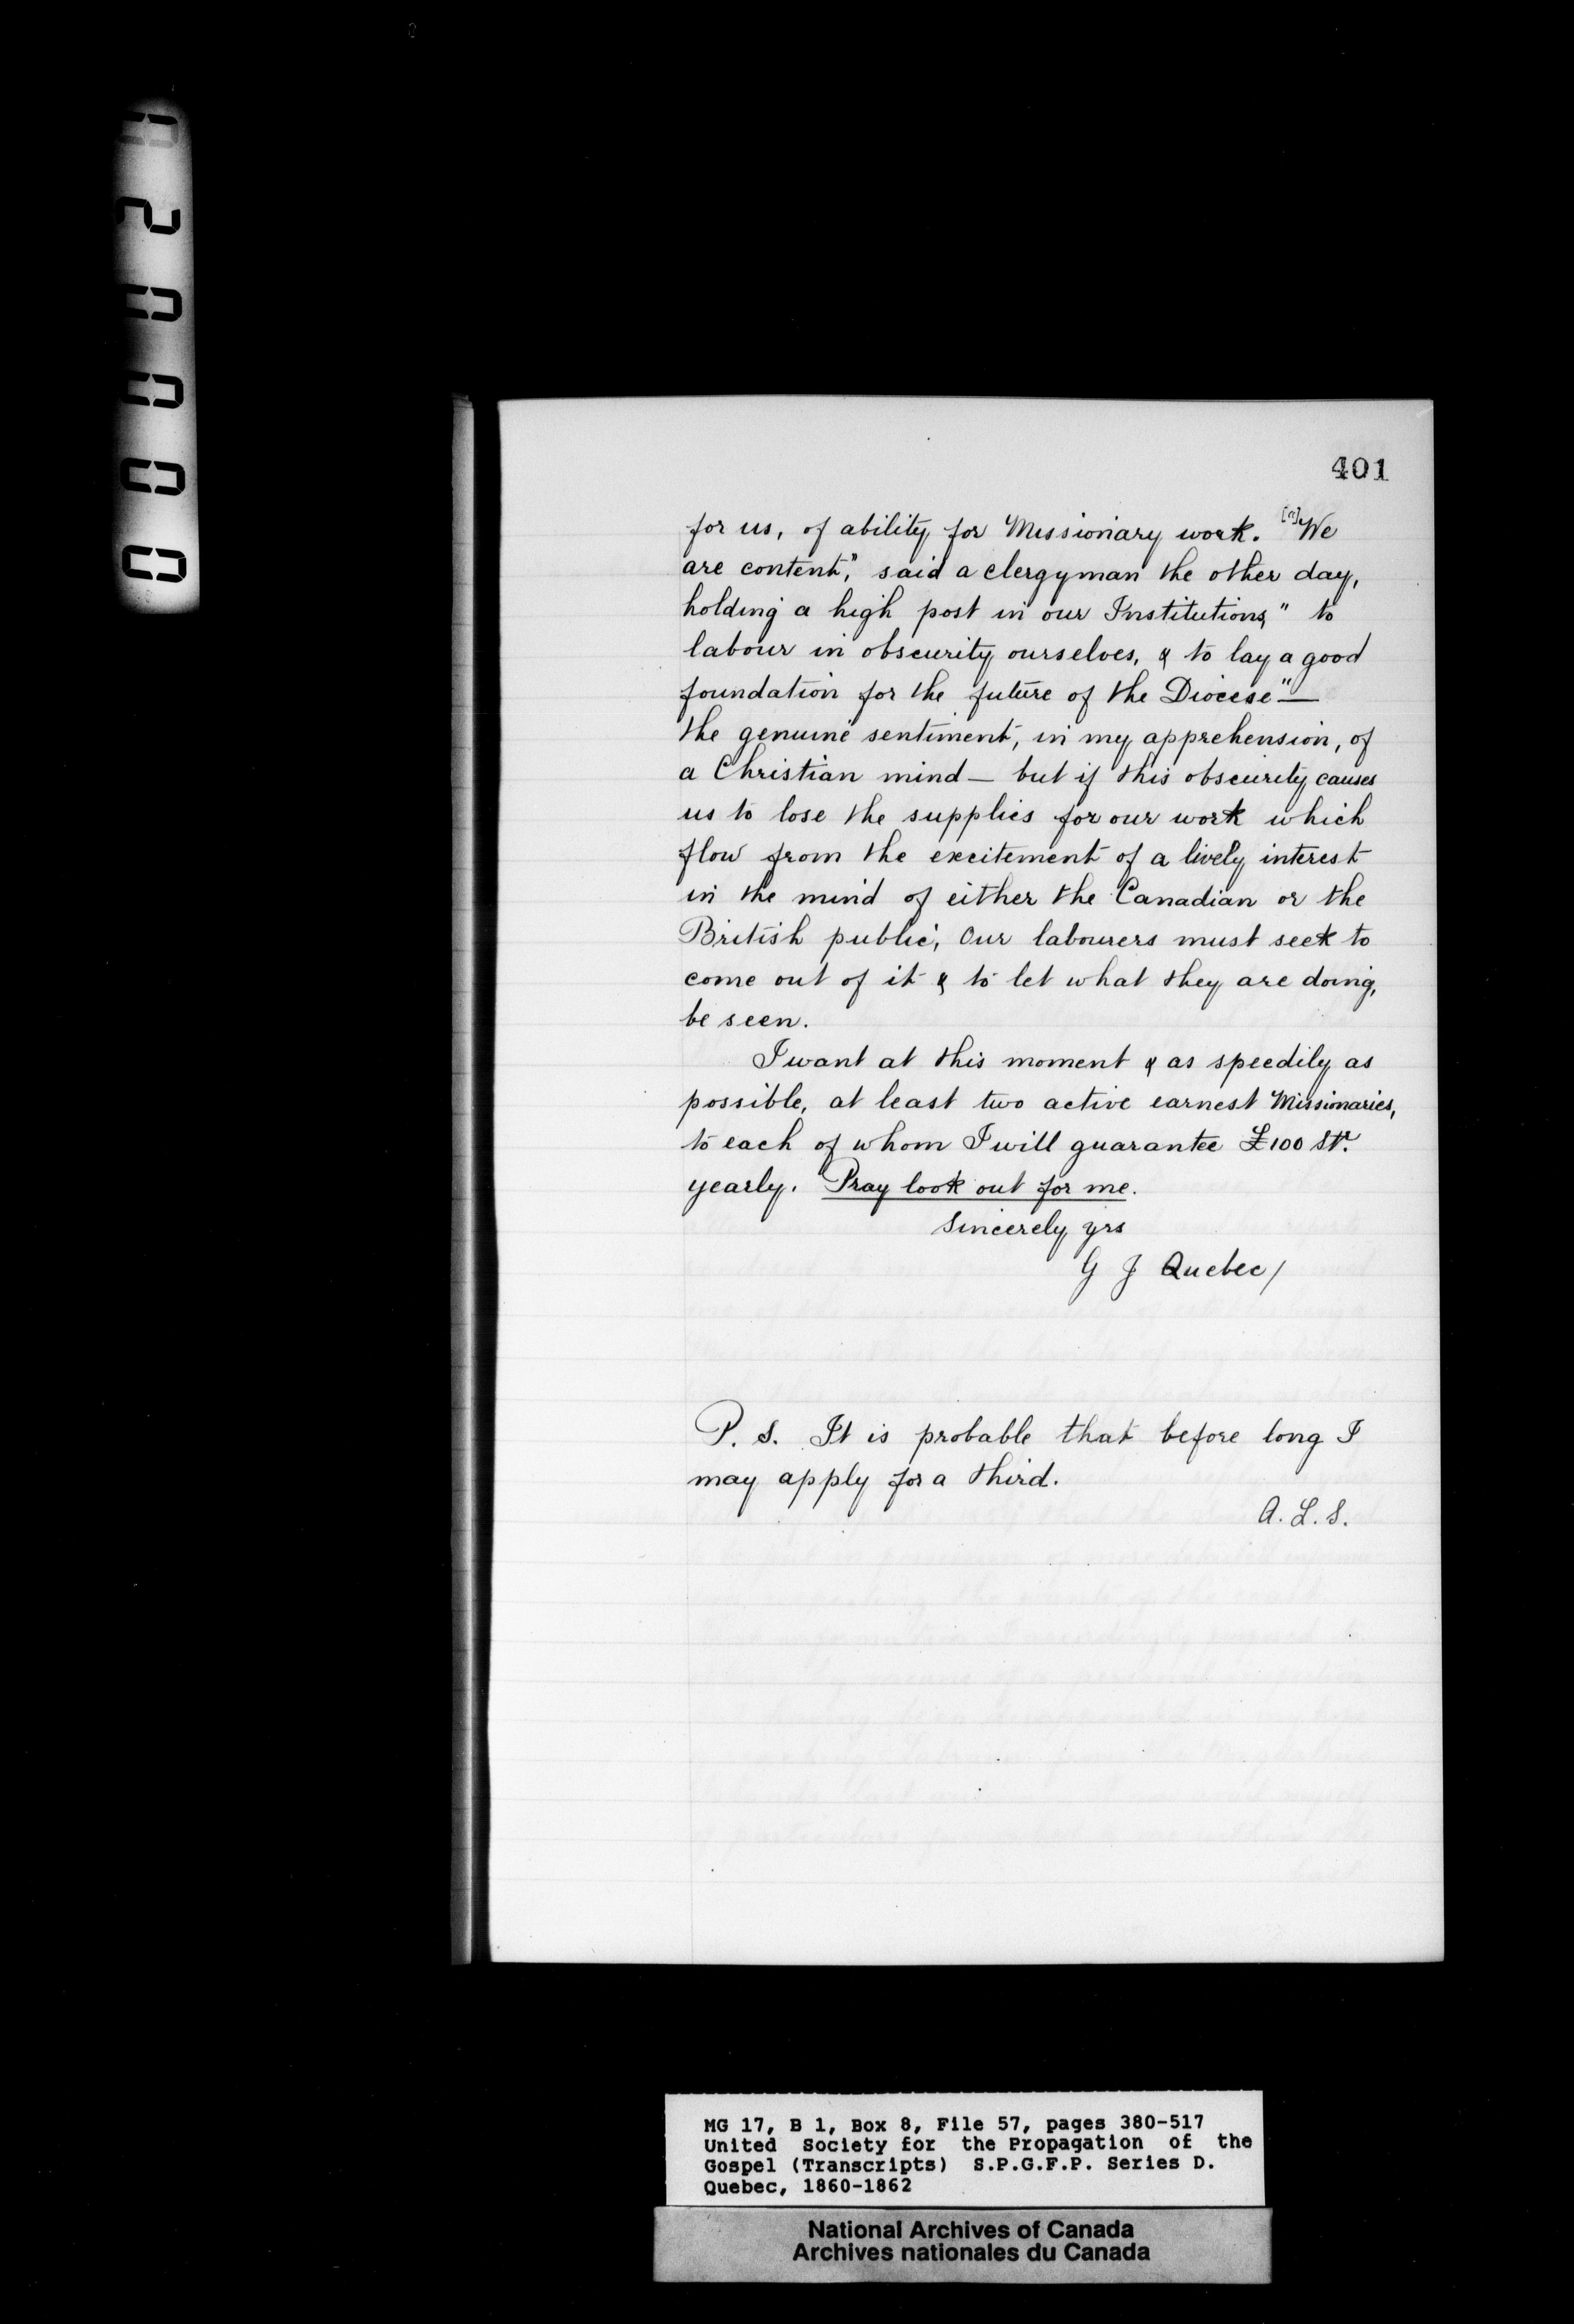 401
for us, of ability for Missionary work. ["]"We
are content," said a clergyman the other day,
holding a high post in our Institutions, " to
labour in obscurity ourselves, & to lay a good
foundation for the future of the Diocese"—
the genuine sentiment, in my apprehension, of
a Christian mind — but if this obscurity causes
us to lose the supplies for our work which
flow from the excitement of a lively interest
in the mind of either the Canadian or the
British public, Our labourers must seek to
come out of it & to let what they are doing,
be seen.
I want at this moment & as speedily as
possible, at least two active earnest Missionaries,
to each of whom I will guarantee £100 Str.
yearly. Pray look out for me.
Sincerely yrs
G J Quebec/
P. S. It is probable that before long I
may apply for a third.
A. L. S.
MG 17, B 1, Box 8, File 57, pages 380-517
United Society for the Propagation of the
Gospel (Transcripts) S.P.G.F.P. Series D.
Quebec, 1860-1862
National Archives of Canada
Archives nationales du Canada